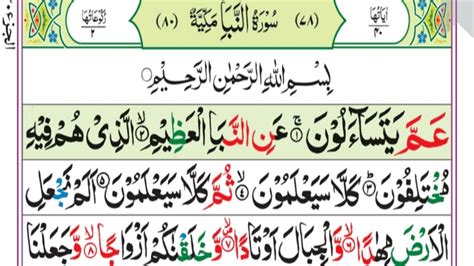 اٰیَاتُهَا ۴۰ (۷۸) سُوْرَةُ النَّبَاِ مَكِّیَّةٌ (۸۰) رُكُوْعَاتُهَا ۲
بِسْمِ اللّٰهِ الرَّحْمٰنِ الرَّحِیْمِ
عَمَّ یَتَسَآءَلُوْنَ ۱ عَنِ النَّبَاِ الْعَظِیْمِ ۲ الَّذِیْ هُمْ فِیْهِ
مُخْتَلِفُوْنَ ۳ كَلَّا سَیَعْلَمُوْنَ ۴ ثُمَّ كَلَّا سَیَعْلَمُوْنَ ۵ اَلَمْ نَجْعَلِ
الْاَرْضَ مِهٰدًا ۶ وَّ الْجِبَالَ اَوْتَادًا ۷ وَّ خَلَقْنٰكُمْ اَزْوَاجًا ۸ وَّ جَعَلْنَا